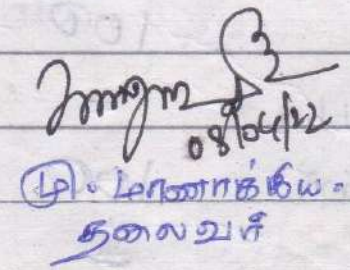 08/04/22
மு. மாணாக்கிய.
தலைவர்